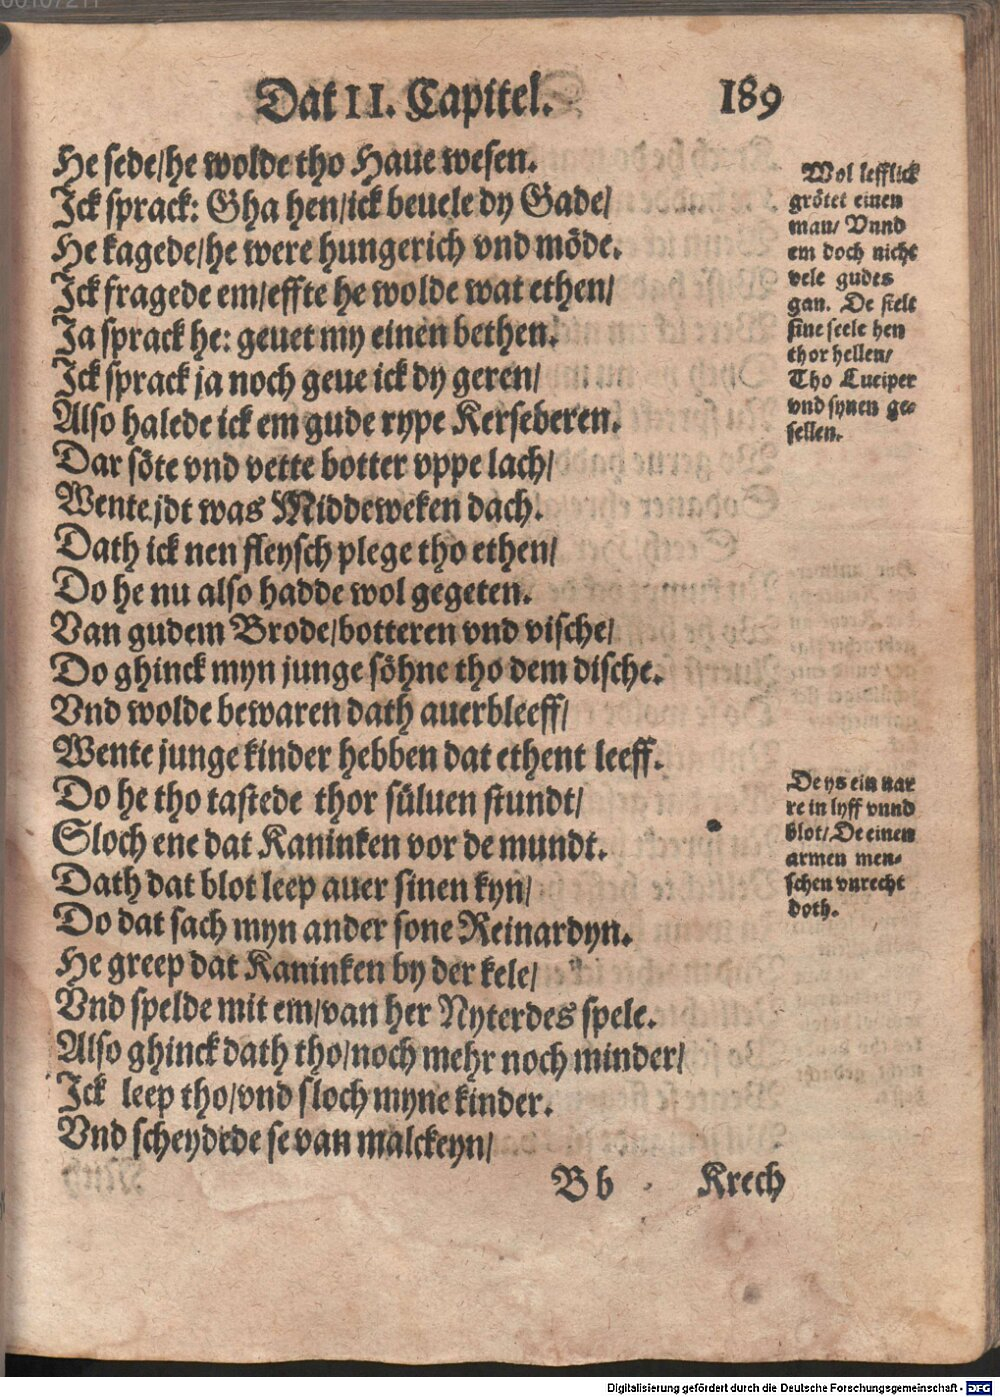 Dat II. Capitel. 189
He sede/he wolde tho Haue wesen.
Ick sprack: Gha hen/ick beuele dy Gade/
He kagede/he were hungerich vnd möde.
Ick fragede em/effte he wolde wat ethen/
Ja sprack he: geuet my einen bethen.
Ick sprack ja noch geue ick dy geren/
Also halede ick em gude rype Kerseberen.
Dar söte vnd vette botter vppe lach/
Wente jdt was Middeweken dach.
Dath ick nen fleysch plege tho ethen/
Do he nu also hadde wol gegeten.
Van gudem Brode/botteren vnd vische/
Do ghinck myn junge söhne tho dem dische.
Vnd wolde bewaren dath auerbleeff/
Wente junge kinder hebben dat ethent leeff.
Do he tho tastede thor süluen stundt/
Sloch ene dat Kaninken vor de mundt.
Dath dat blot leep auer sinen kyn/
Do dat sach myn ander sone Reinardyn.
He greep dat Kaninken by der kele/
Vnd spelde mit em/van her Nyterdes spele.
Also ghinck dath tho/noch mehr noch minder/
Ick leep tho/vnd sloch myne kinder.
Vnd scheydede se van malckeyn/
Bb Krech
Wol lefflick
grötet einen
man/ Vnnd
em doch nicht
vele gudes
gan. De stelt
sine seele hen
thor hellen/
Tho Luciper
vnd synen ge-
sellen.
De ys ein nar
re in lyff vnnd
blot/De einen
armen men-
schen vnrecht
doth.
Digitalisierung gefördert durch die Deutsche Forschungsgemeinschaft - DFG